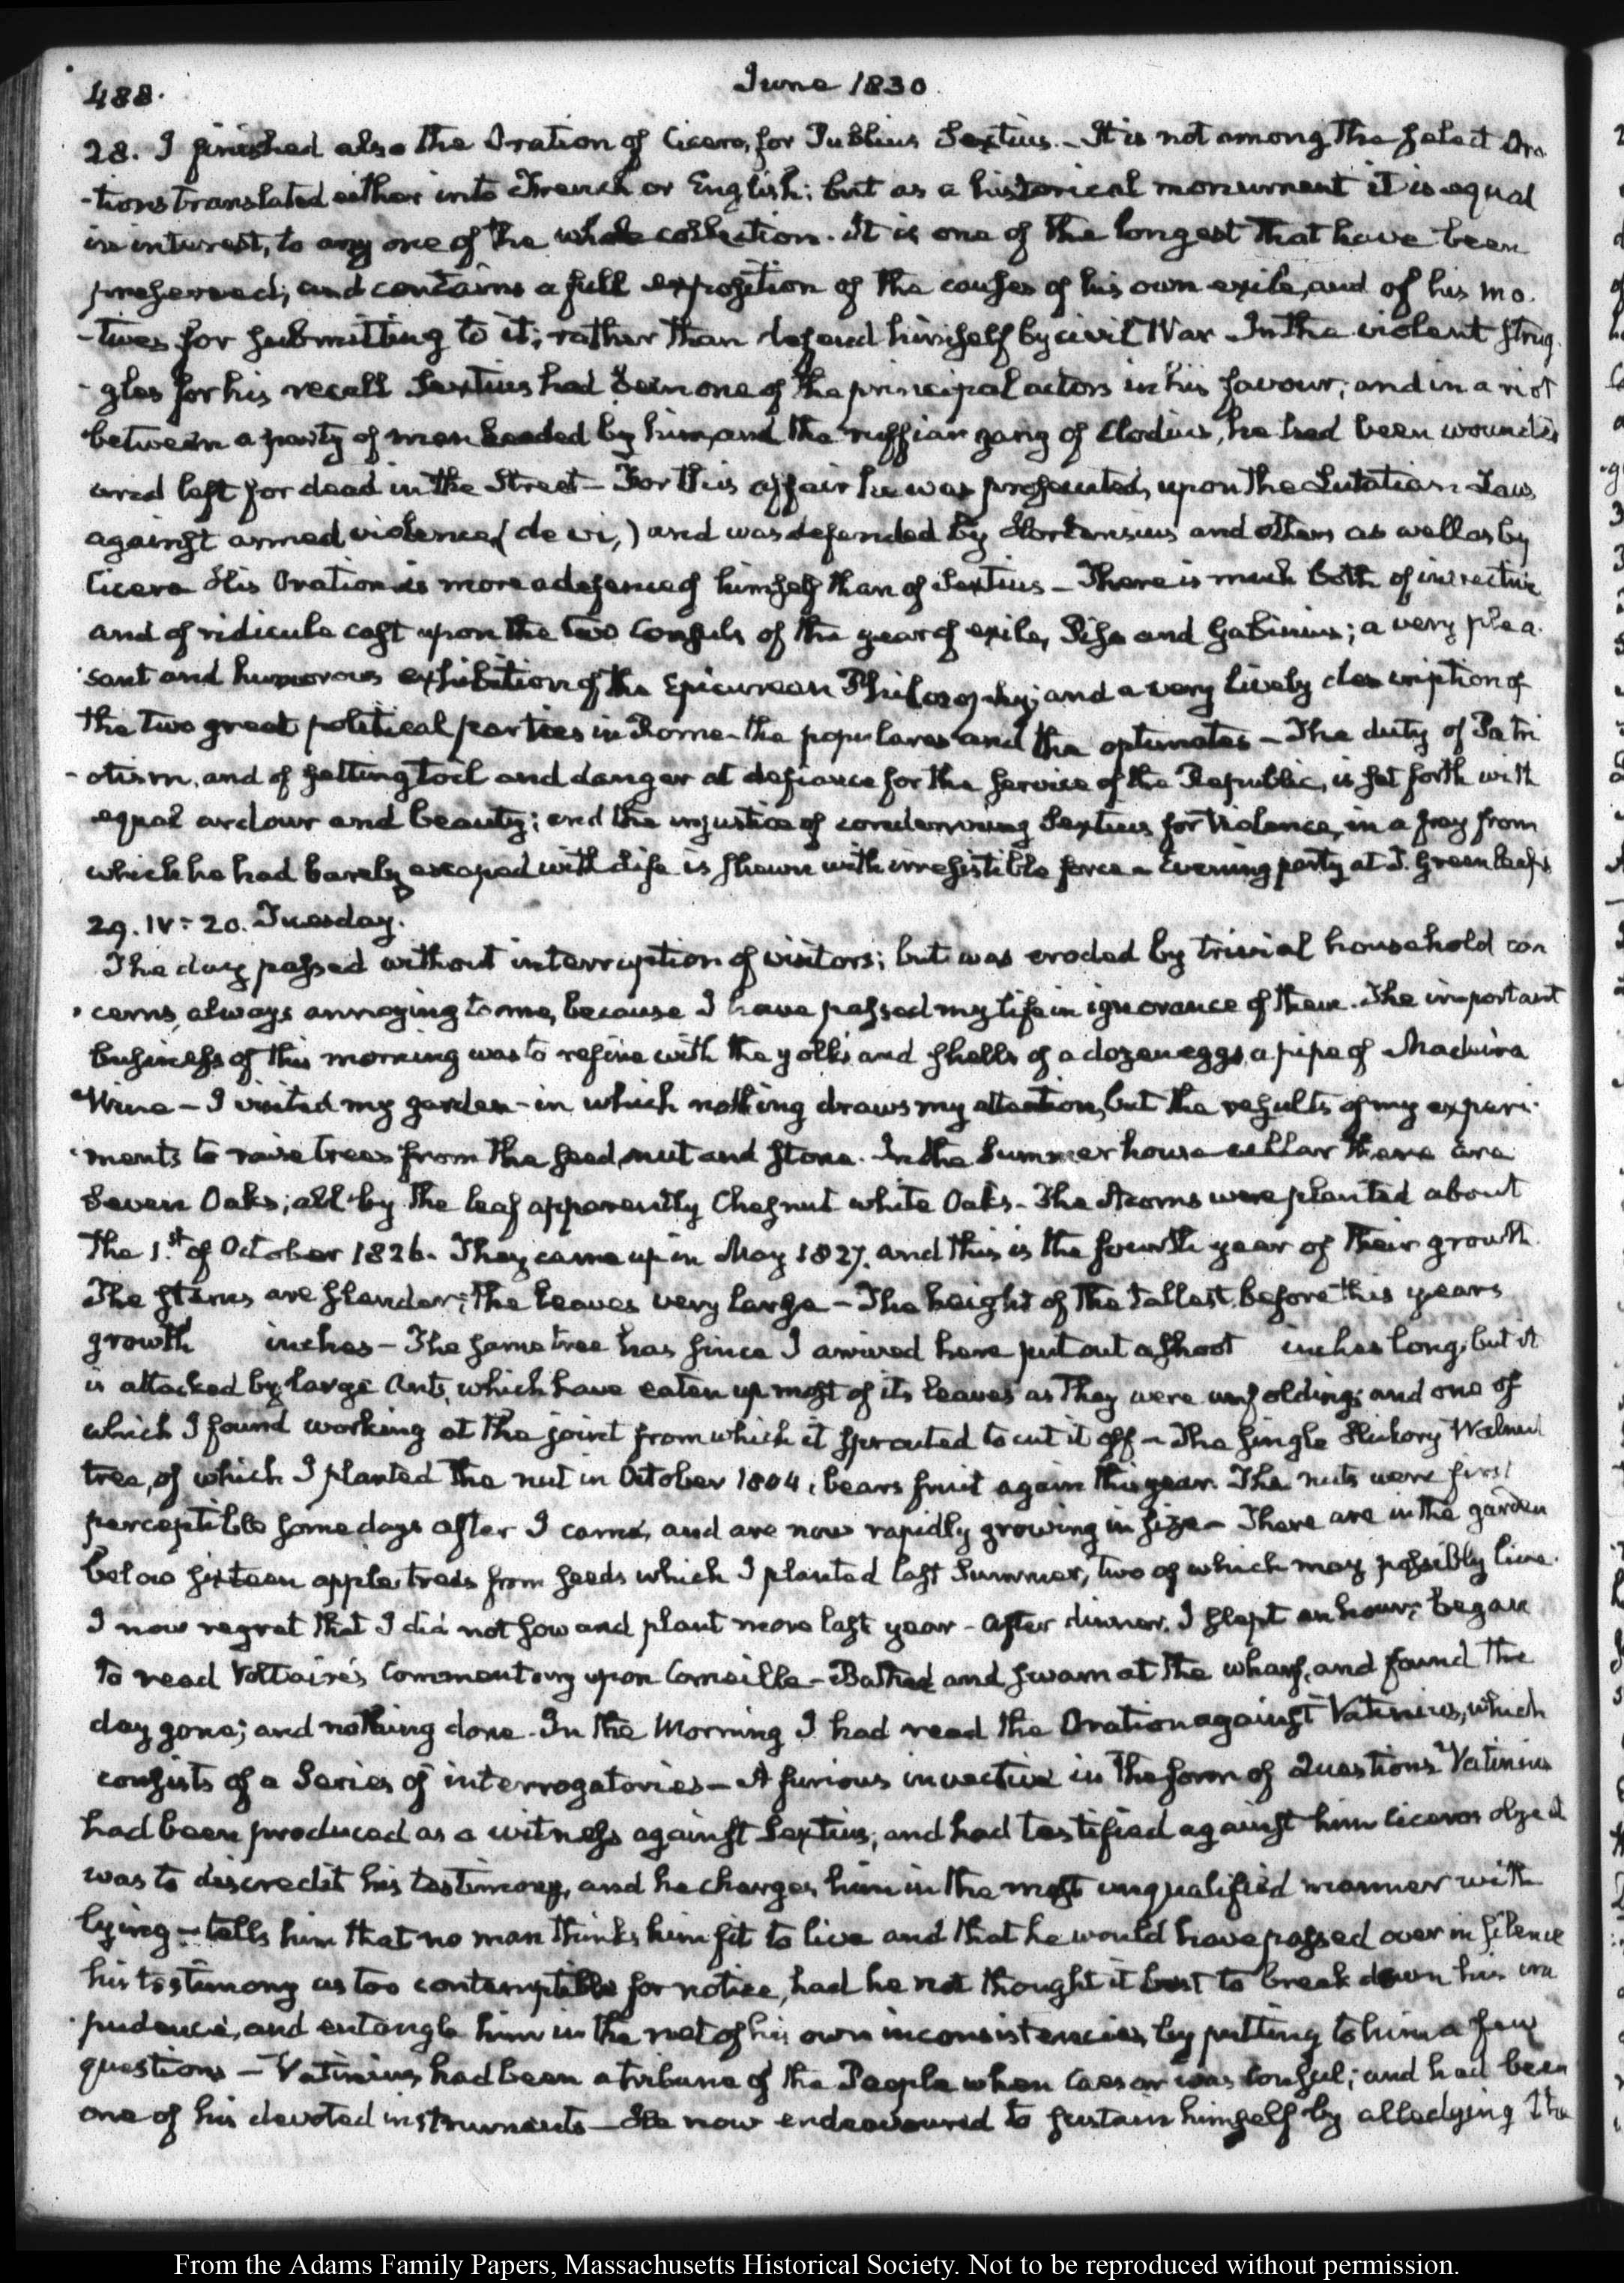 488.
June 1830.
28. I finished also the Oration of Cicero, for Publius Sextius. - It is not among the select Ora
-tions translated either into French or English: but as a historical monument it is equal
in interest, to any one of the whole collection. It is one of the longest that have been
preserved; and contains a full exposition of the causes of his own exile, and of his mo.
-tives for submitting to it; rather than defend himself by civil War. In the violent strug.
-gles for his recall Sextius had been one of the principal actors in his favour; and in a riot
between a party of men headed by him, and the ruffian gang of Clodius, he had been wounded
and left for dead in the Street - For this affair he was prosecuted, upon the Lutatian Law
against armed violence (de vi,) and was defended by Hortensius and others as well as by
Cicero His Oration is more a defence of himself than of Sextius - There is much both of invective
and of ridicule cast upon the two Consuls of the year of exile, Piso and Gabinius; a very plea.
sant and humorous exhibition of the Epicurean Philosophy; and a very lively description of
the two great political parties in Rome - the populares and the optimates - The duty of Patri
-otism, and of setting toil and danger at defiance for the service of the Republic, is set forth with
equal ardour and beauty; and the injustice of condemning Sextius for Violence, in a fray from
which he had barely escaped with Life is shown with irresistible force - Evening party at D. Greenleaf's
29. IV: 20. Tuesday.
The day passed without interruption of visitors; but was eroded by trivial household con
cerns, always annoying to me, because I have passed my life in ignorance of them. The important
business of this morning was to refine with the yolks and shells of a dozen eggs, a pipe of Madeira
Wine - I visited my garden - in which nothing draws my attention, but the results of my experi.
ments to raise trees from the seed, nut and stone. In the Summer house cellar there are
Seven Oaks; all by the leaf apparently Chesnut white Oaks - The Acorns were planted about
the 1st of October 1826. They came up in May 1827. and this is the fourth year of their growth.
The stems are slender; the leaves very large - The height of the tallest, before this years
growth inches - The same tree has since I arrived here put out a shoot inches long, but it
is attacked by large Ants, which have eaten up most of its leaves as they were unfolding; and one of
which I found working at the joint from which it sprouted to cut it off - The single Hickory Walnut
tree, of which I planted the nut in October 1804, bears fruit again this year. The nuts were first
perceptible some days after I came, and are now rapidly growing in size - There are in the garden
below sixteen apple trees from seeds which I planted last Summer, two of which may possibly live.
I now regret that I did not sow and plant more last year - After dinner, I slept an hour; began
to read Voltaire's Commentary upon Corneille - Bathed and swam at the wharf, and found the
day gone; and nothing done. In the Morning I had read the Oration against Vatinius, which
consists of a Series of interrogatories - A furious invective in the form of Questions. Vatinius
had been produced as a witness against Sextius, and had testified against him Ciceros object
was to discredit his testimony, and he charges him in the most unqualified manner with
lying - tells him that no man thinks him fit to live and that he would have passed over in silence
his testimony as too contemptible for notice, had he not thought it best to break down his im
pudence, and entangle him in the net of his own inconsistencies, by putting to him a few
questions - Vatinius had been a tribune of the People when Caesar was Consul; and had been
one of his devoted instruments - He now endeavoured to sustain himself by alledging the
From the Adams Family Papers, Massachusetts Historical Society. Not to be reproduced without permission.